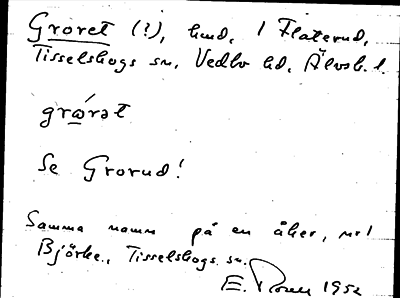 Groret (?), hmd, 1 Flaterud,
Tisselskogs sn, Vedbo hd, Älvsb. l.
grώrət
Se Grorud!
Samma namn på en åker, nr 1
Björke, Tisselskogs sn.
E. 1952